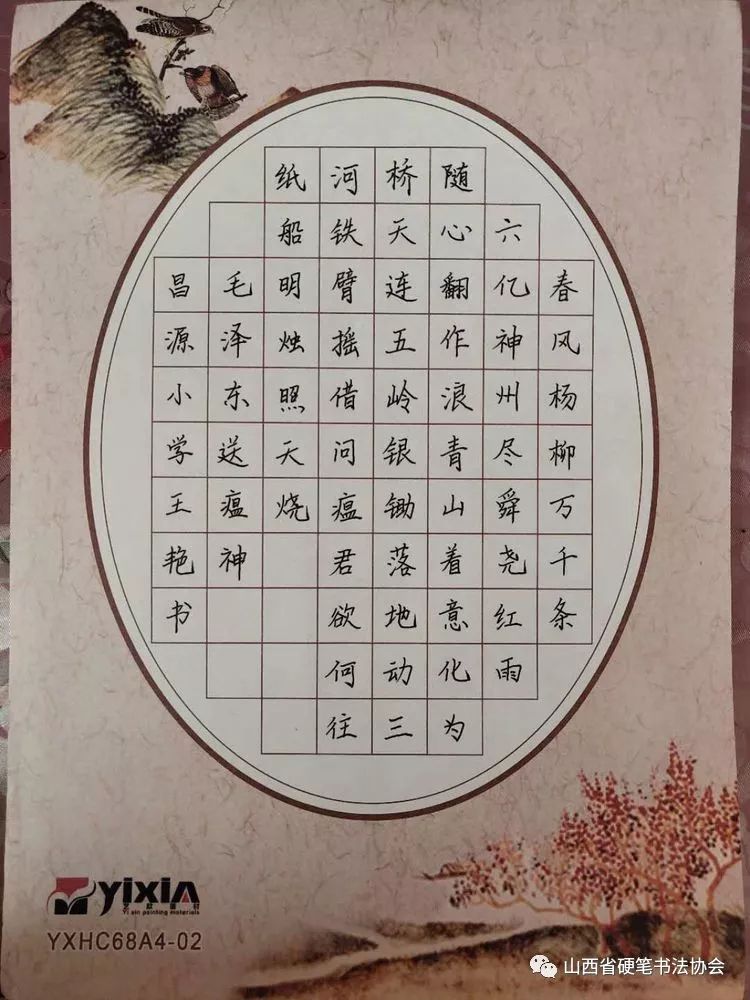 春风杨柳万千条
六亿神州尽舜尧红雨
随心翻作浪青山着意化为
桥天连五岭银锄落地动三
河铁臂摇借问瘟君欲何往
纸船明烛照天烧
毛泽东送瘟神
昌源小学王艳书
YIXIN
Yi xin painting materials
YXHC68A4-02
山西省硬笔书法协会